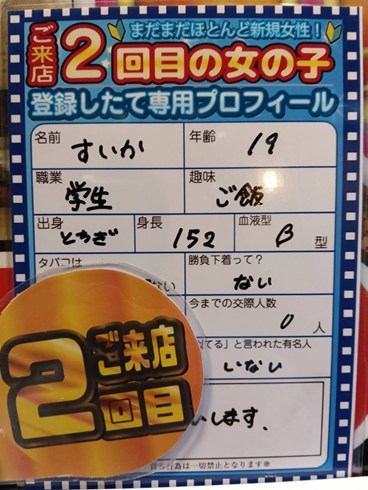 まだまだほとんど新規女性！
ご来店2回目の女の子
登録したて専用プロフィール
名前 すいか 年齢 19
職業 学生 趣味 ご飯
出身 とちぎ 身長 152 血液型 B 型
タバコは ない 勝負下着って？ ない
今までの交際人数 0 人
てる」と言われた有名人 いない
します、
行為は一切禁止となります※
ご来店
2回目